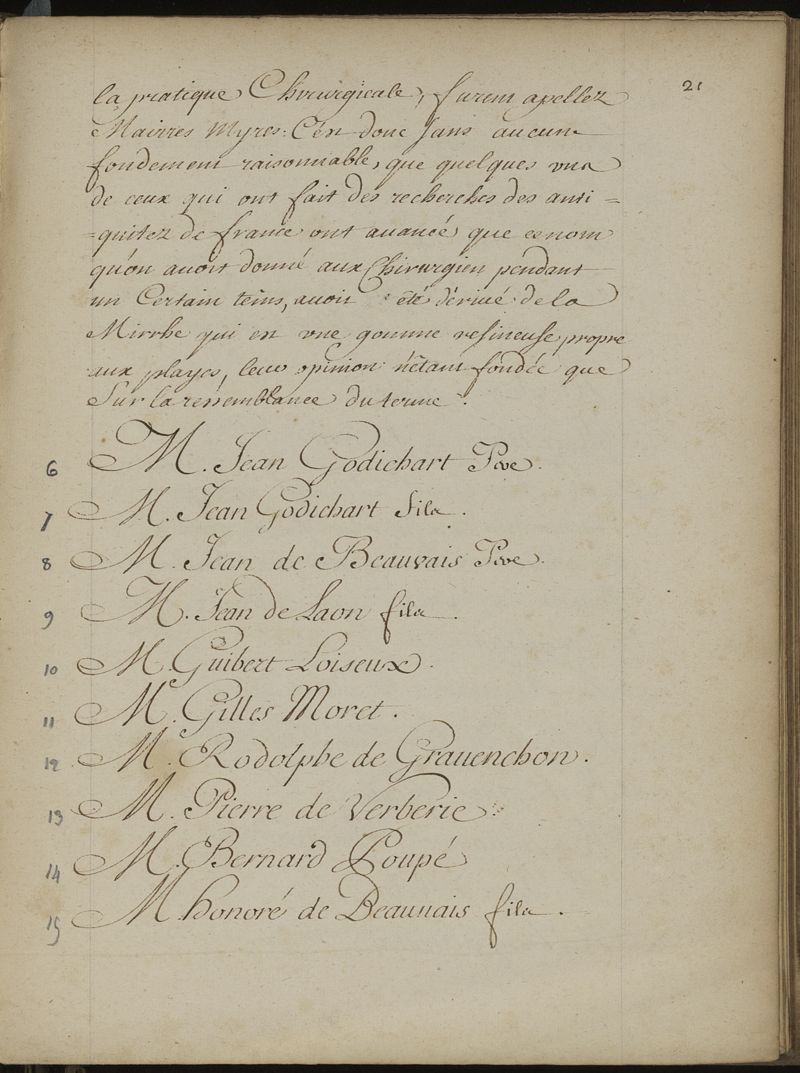 21
la pratique Chirurgicale, furent apellez
Maitres Myres. C'est donc sans aucun
fondement raisonnable, que quelques uns
de ceux qui ont fait des recherches des anti=
=quitez de france ont avancé, que ce nom
qu'on avoit donné aux Chirurgien pendant
un Certain tems, avoit été dérivé de la
Mirrhe qui est une gomme resineuse propre
aux playes, leur opinion n'étant fondée que
Sur la ressemblance du terme.
6 M. Jean Godichart Pere.
7 M. Jean Godichart fils.
8 M. Jean de Beauvais Pere.
9 M. Jean de Laon fils.
10 M. Guibert Loiseux.
11 M. Gilles Moret.
12 M. Rodolphe de Grauenchon.
13 M. Pierre de Verberie.
14 M. Bernard Poupé
15 M. honoré de Beauuais fils.